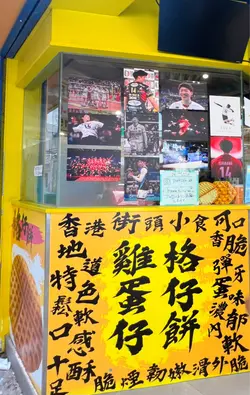 香港街頭小食可口
香脆
地道
特色
鬆軟
口感
十足
格仔餅
雞蛋仔
彈牙
蛋味
濃郁
內軟
酥脆煙韌嫩滑外脆
14
14